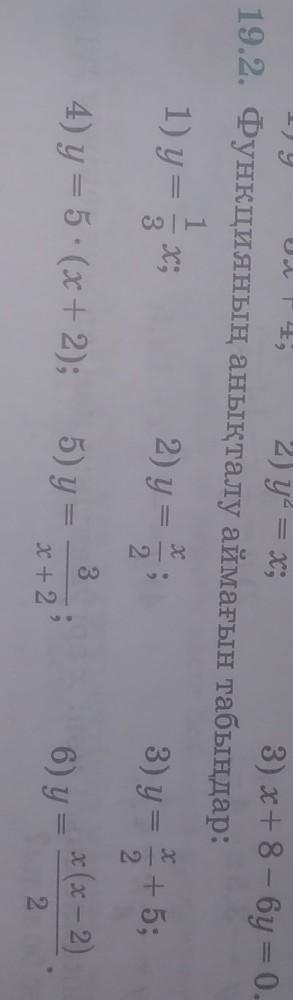 1) y = 3x + 4; 2) y² = x; 3) x + 8 − 6y = 0.
19.2. Функцияның анықталу аймағын табыңдар:
1) y = 1/3 x; 2) y = x/2; 3) y = x/2 + 5;
4) y = 5 · (x + 2); 5) y = 3/(x + 2); 6) y = x(x − 2)/2.